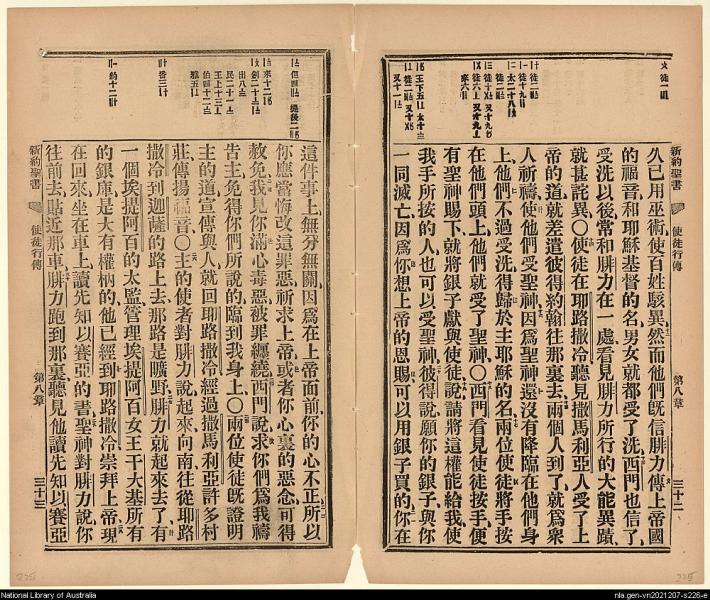 新約聖書
使徒行傳
第八章
三十二
久已用巫術使百姓駭異然而他們旣信腓力傳上帝國
的福音和耶穌基督的名男女就都受了洗西門也信了
受洗以後常和腓力在一處看見腓力所行的大能異蹟
就甚詫異〇使徒在耶路撒冷聽見撒馬利亞人受了上
帝的道就差遣彼得約翰往那裏去兩個人到了就爲衆
人祈禱使他們受聖神因爲聖神還沒有降臨在他們身
上他們不過受洗得歸於主耶穌的名兩位使徒將手按
在他們頭上他們就受了聖神〇西門看見使徒按手便
有聖神賜下就將銀子獻與使徒說請將這權能給我使
我手所按的人也可以受聖神彼得說願你的銀子與你
一同滅亡因爲你想上帝的恩賜可以用銀子買的你在
這件事上無分無關因爲在上帝面前你的心不正所以
你應當悔改這罪惡祈求上帝或者你心裏的惡念可得
赦免我見你滿心毒惡被罪纏繞西門說求你們爲我禱
告主免得你們所說的臨到我身上〇兩位使徒旣證明
主的道宣傳與人就回耶路撒冷經過撒馬利亞許多村
莊傳揚福音〇主的使者對腓力說起來向南往從耶路
撒冷到迦薩的路上去那路是曠野腓力就起來去了有
一個埃提阿百的太監管理埃提阿百女王干大基所有
的銀庫是大有權柄的他已經到耶路撒冷崇拜上帝現
在回來坐在車上讀先知以賽亞的書聖神對腓力說你
往前去貼近那車腓力跑到那裏聽見他讀先知以賽亞
新約聖書
使徒行傳
第八章
三十三
National Library of Australia
nla.gen-vn2021207-s226-e